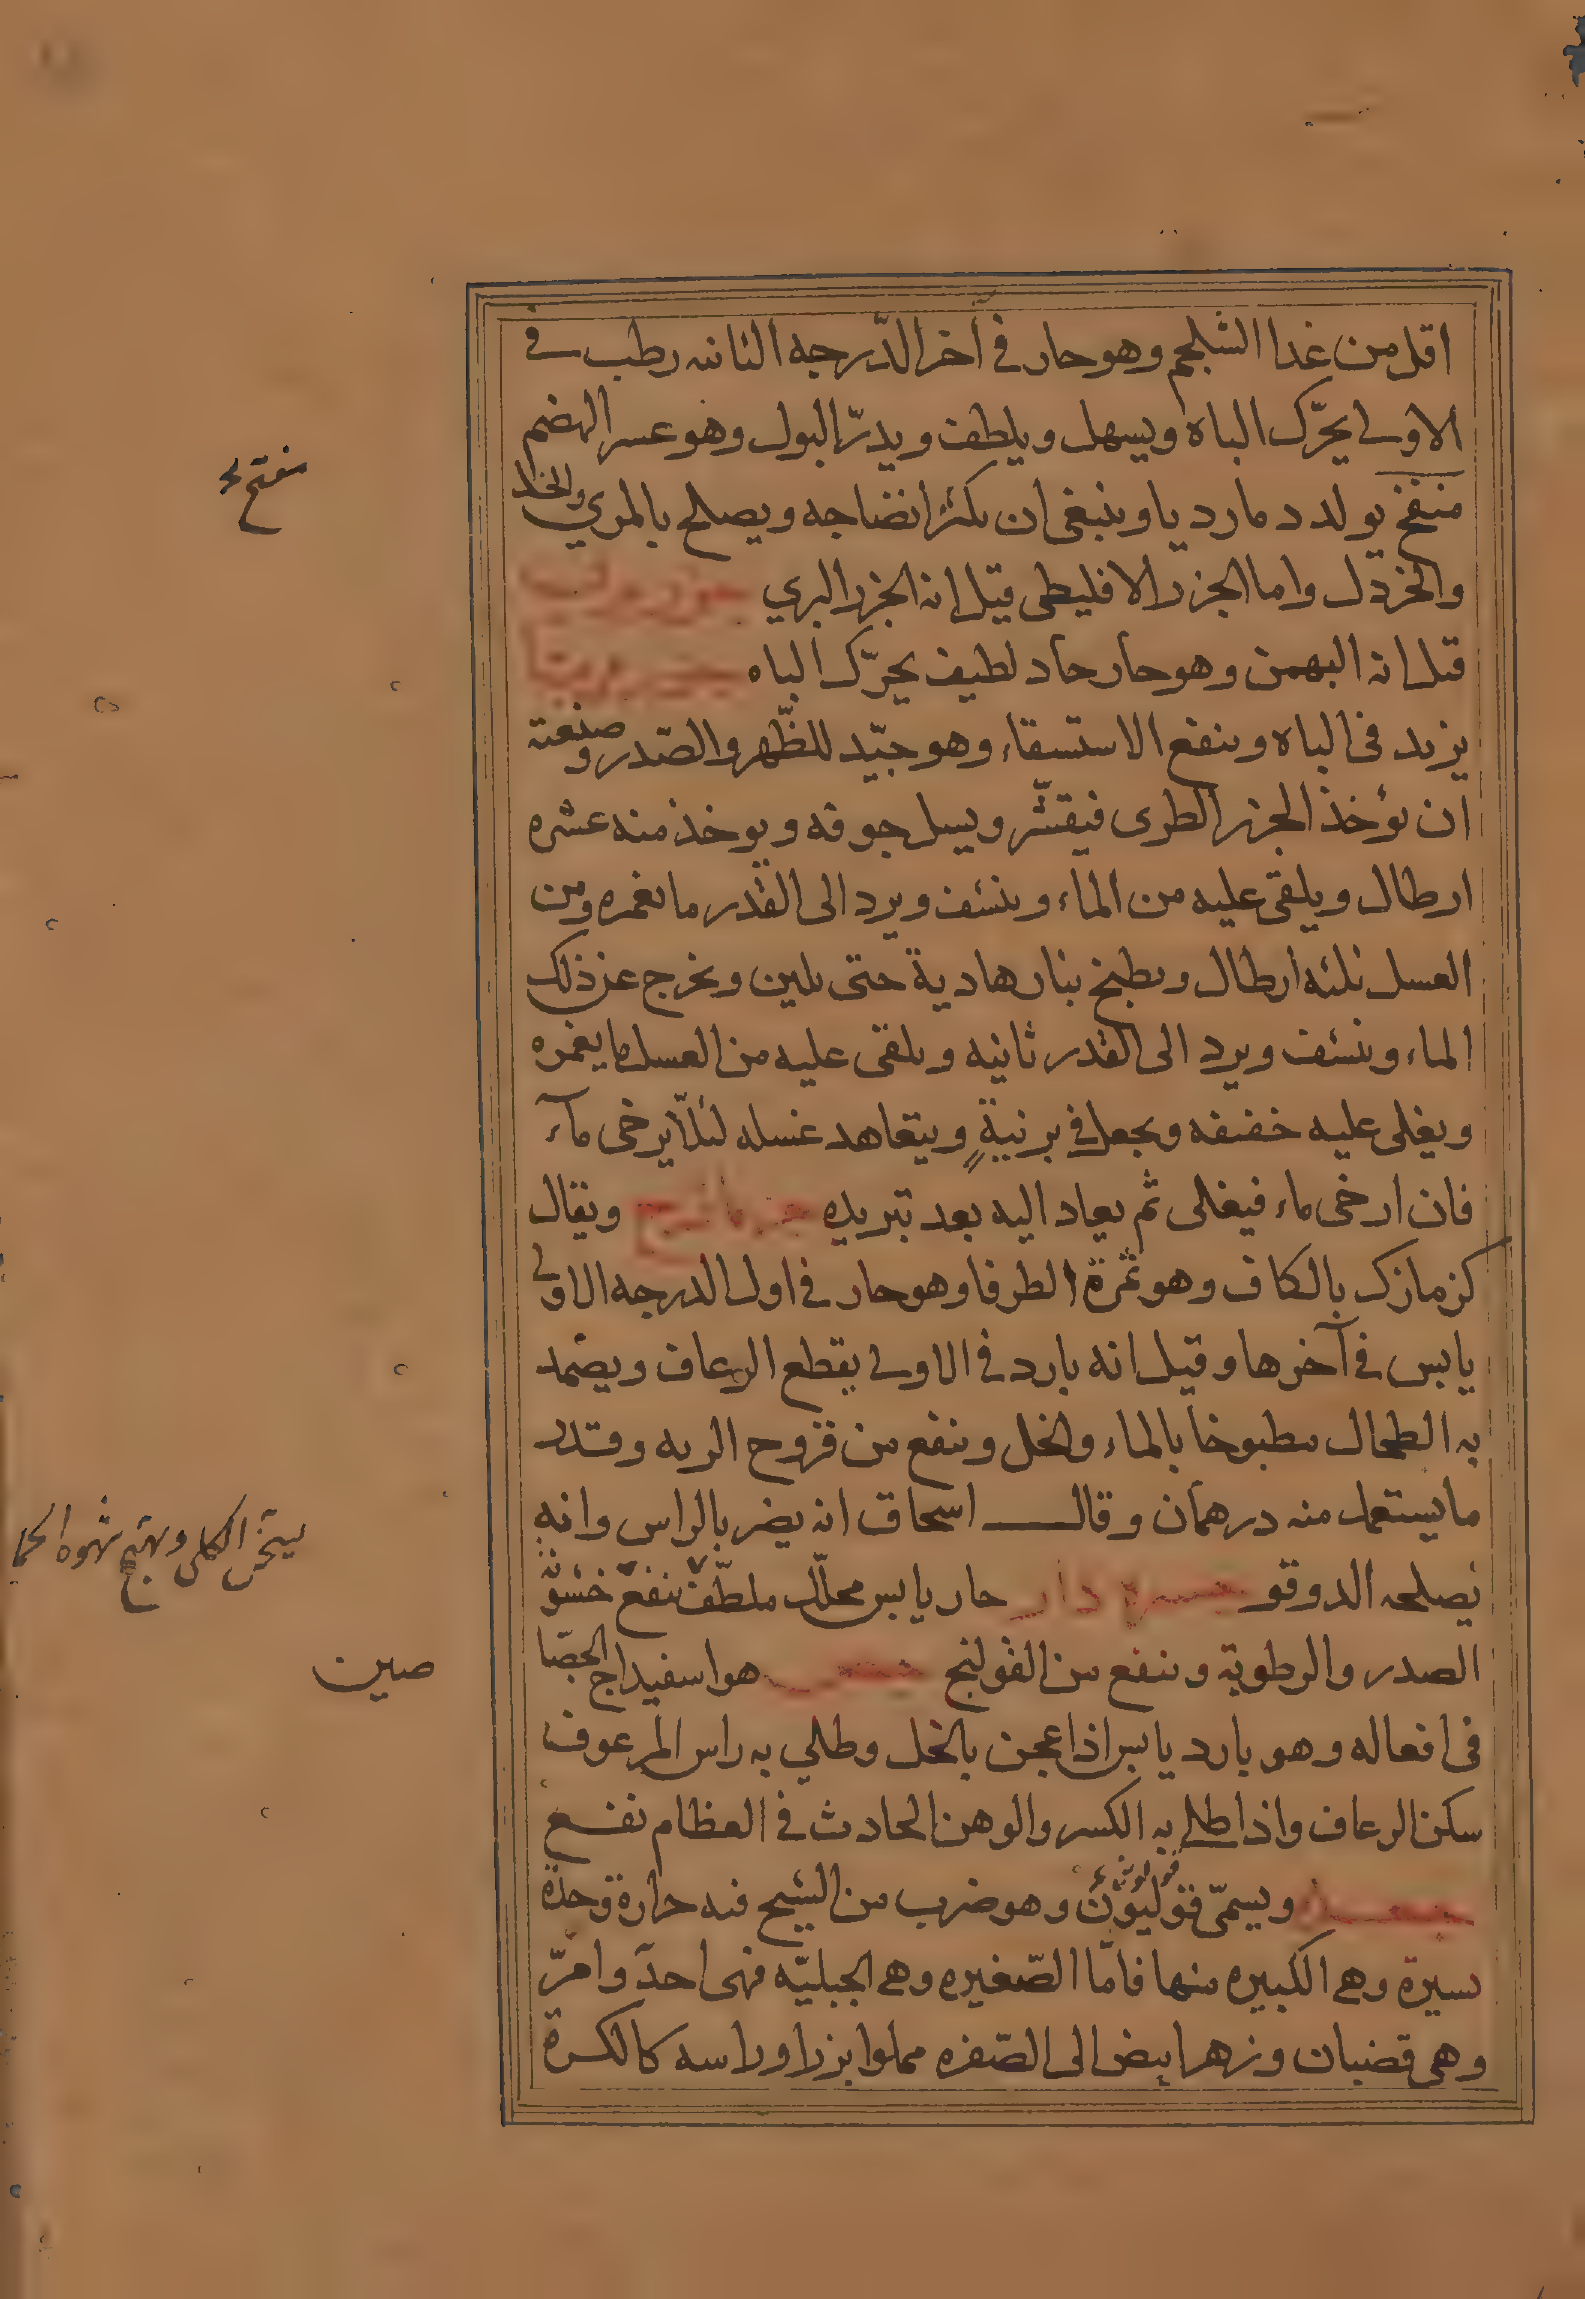 اقل من غذا الشلجم وهو حار في آخر الدّرجه الثانيه رطب في
الاولى يحرّك الباه ويسهل ويلطف ويدرّ البول وهو عسر الهضم
منفخ يولد دما رديا وينبغي ان يكثر انضاجه ويصلح بالمري والخل
والخردل واما الجزر الاقليطي قيل انه الجزر البري
قيل انه البهمن وهو حار حاد لطيف يحرّك الباه جزر مربا
يزيد في الباه وينفع الاستسقاء وهو جيّد للظّهر والصّدر وصنعته
ان يؤخذ الجزر الطرى فيقشّر ويسل جوفه ويوخذ منه عشره
ارطال ويلقى عليه من الماء وينشف ويرد الى القدر ما يغمره ومن
العسل ثلثه ارطال ويطبخ بنار هادية حتى يلين ويخرج عن ذلك
الماء وينشف ويرد الى القدر ثانيه ويلقى عليه من العسل ما يغمره
ويغلى عليه خفيفه ويجعل في برنيةٍ ويتعاهد غسله لئلّا يرخى مآء
فان ارخى ماء فيغلى ثم يعاد اليه بعد تبريده ويقال
كزمازك بالكاف وهو ثمرة الطرفا وهو حار في اول الدرجه الاولى
يابس في آخرها وقيل انه بارد في الاولى يقطع الرعاف ويضمد
به الطحال مطبوخا بالماء والخل وينفع من قروح الريه وقدر
ما يستعمل منه درهمان وقال اسحاق انه يضر بالراس وانه
يصلحه الدوقو دار حار يابس محلّل ملطّف ينفع خشونة
الصدر والرطوبة وينفع من القولنج جص هو اسفيداج الجصّا
في افعاله وهو بارد يابس اذا عجن بالخل وطلي به راس المرعوف
سكن الرعاف واذا طلي به الكسر والوهن الحادث في العظام نفع
جعده ويسمّى فوليون وهو ضرب من الشيح فيه حرارة وحدة
يسيرة وهي الكبيره منها فامّا الصّغيره وهي الجبليّه فهى احدّ وامرّ
وهى قضبان وزهر ابيض الى الصّفره مملوا بزرا وراسه كالكرة
مفتح
يسخن الكلى ويهيج شهوة الجما
صين